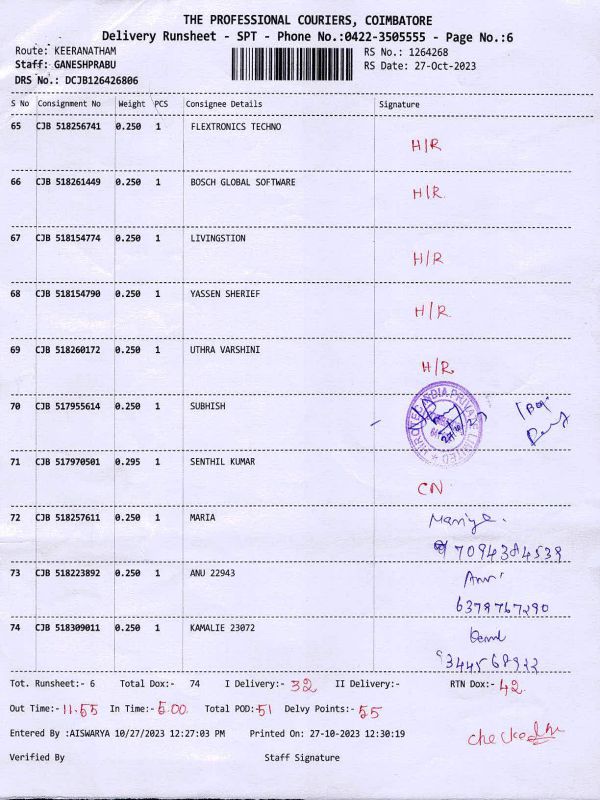 THE PROFESSIONAL COURIERS, COIMBATORE
Delivery Runsheet - SPT - Phone No.:0422-3505555 - Page No.:6
Route: KEERANATHAM RS No.: 1264268
Staff: GANESHPRABU RS Date: 27-Oct-2023
DRS No.: DCJB126426806
S No Consignment No Weight PCS Consignee Details Signature
65 CJB 518256741 0.250 1 FLEXTRONICS TECHNO
H/R
66 CJB 518261449 0.250 1 BOSCH GLOBAL SOFTWARE
H/R
67 CJB 518154774 0.250 1 LIVINGSTION
H/R
68 CJB 518154790 0.250 1 YASSEN SHERIEF
H/R
69 CJB 518260172 0.250 1 UTHRA VARSHINI
H/R
70 CJB 517955614 0.250 1 SUBHISH
INDIA PRIVATE LIMITED
71 CJB 517970501 0.295 1 SENTHIL KUMAR
CN
72 CJB 518257611 0.250 1 MARIA
7094384539
73 CJB 518223892 0.250 1 ANU 22943
6379767290
74 CJB 518309011 0.250 1 KAMALIE 23072
Tot. Runsheet:- 6 Total Dox:- 74 I Delivery:- 32 II Delivery:- RTN Dox:- 42
Out Time:- 11.55 In Time:- 5.00 Total POD: 51 Delvy Points:- 55
Entered By :AISWARYA 10/27/2023 12:27:03 PM Printed On: 27-10-2023 12:30:19
checked
Verified By Staff Signature